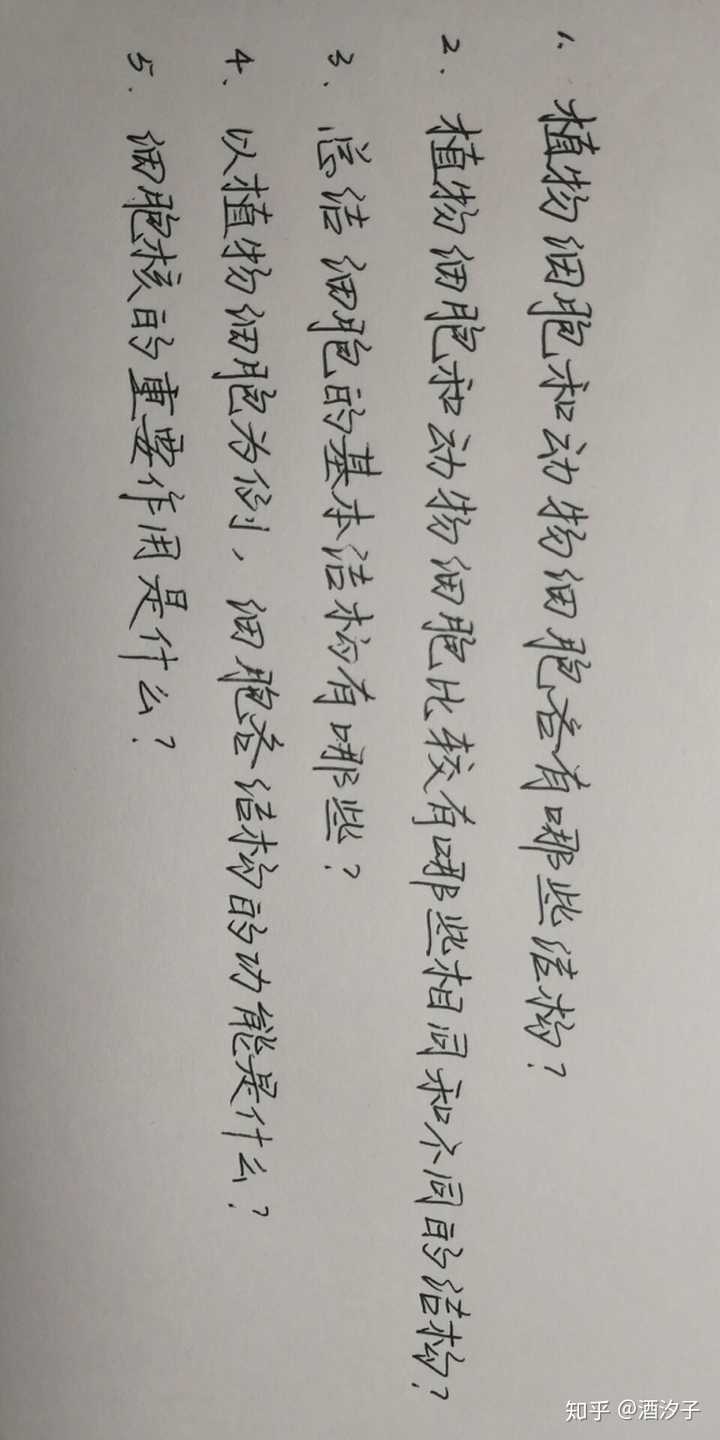 1. 植物细胞和动物细胞各有哪些结构?
2. 植物细胞和动物细胞比较有哪些相同和不同的结构?
3. 总结细胞的基本结构有哪些?
4. 以植物细胞为例,细胞各结构的功能是什么?
5. 细胞核的重要作用是什么?
知乎 @酒汐子